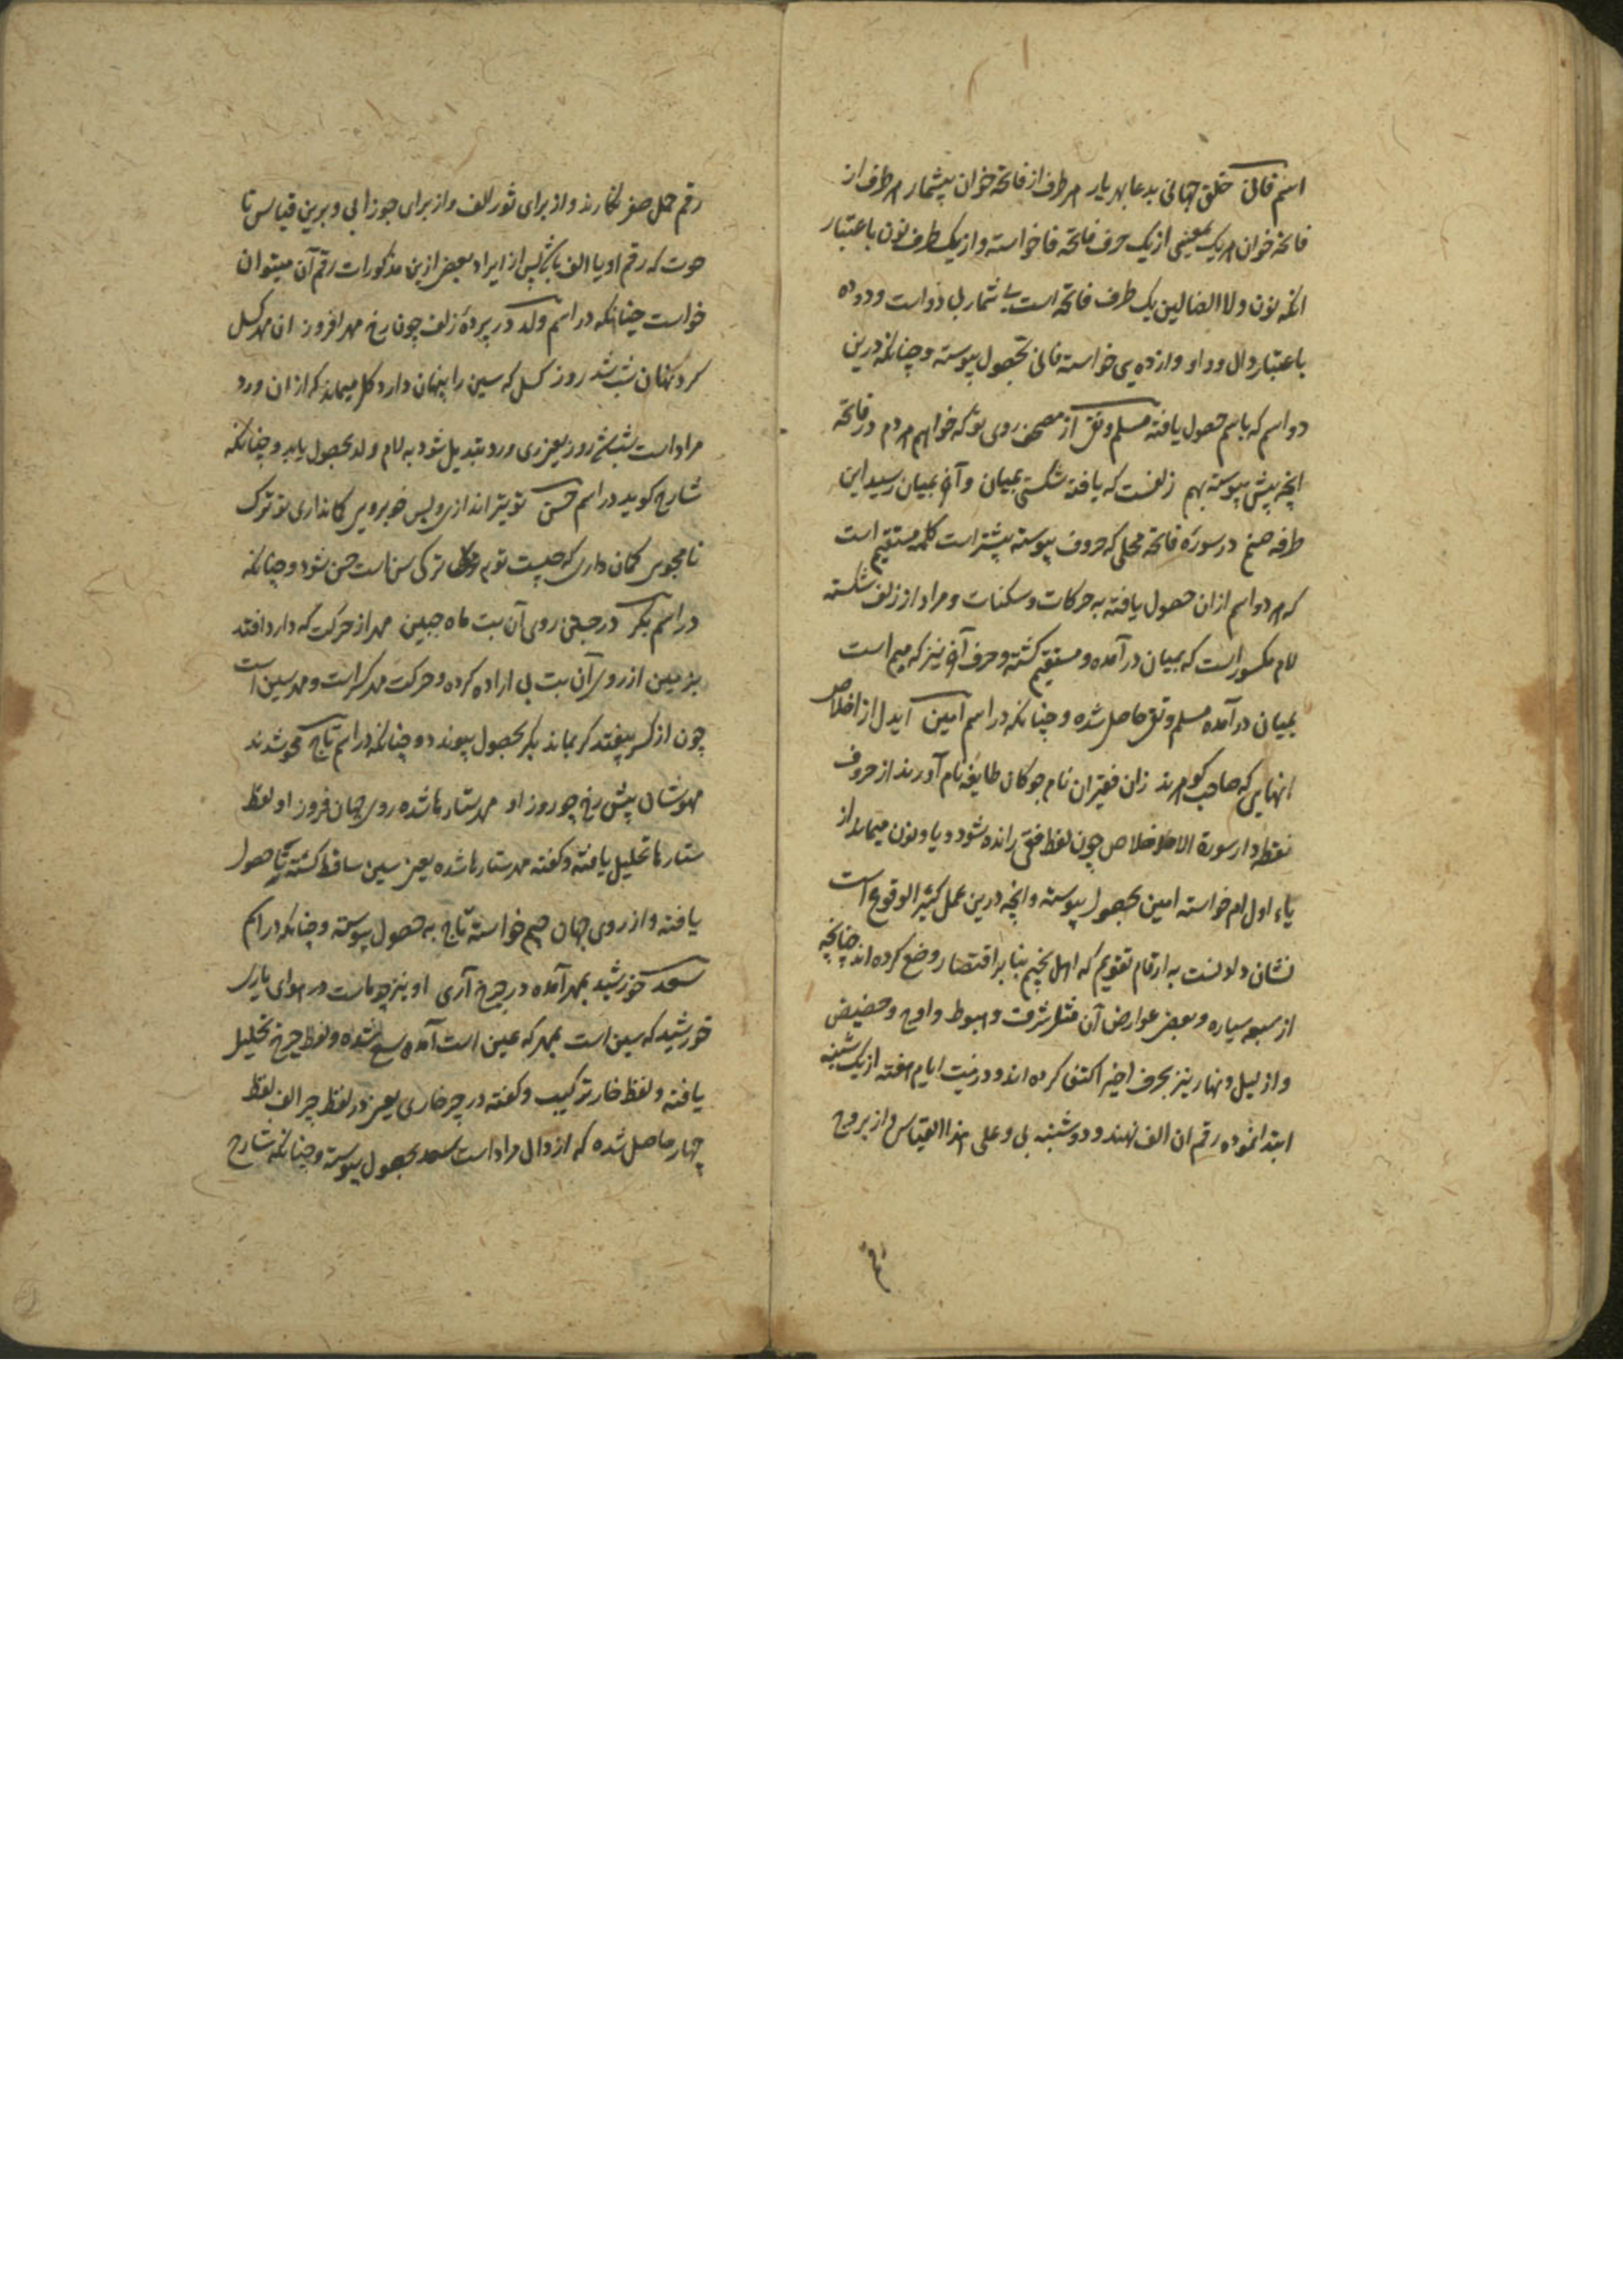 اسم فانی خلق جهانی بدعا بهر یار هر طرف از فاتحه خوان بیشمار هر طرف از
فاتحه خوان هر یک بمعنیی از یک حرف فاتحه فا خواسته و از یک طرف نون باعتبار
انکه نون ولا الضالین یک طرف فاتحه است بی شمار با دو است و دو ده
باعتبار دال و واو و از ده ی خواسته فانی بحصول پیوسته و چنانکه درین
دو اسم که باسم حصول یافته مسلم و تقی از مصحف روی تو که خواهم هر دم در فاتحه
انچه پیش پیوسته بهم زلفست که یافته شکستی بمیان و آخر بمیان رسید این
طرفه صنم در سوره فاتحه محلی که حروف پیوسته بیشتر است کلمه مستقیم است
که هر دو اسم ازان حصول یافته به حرکات و سکنات و مراد از زلف شکسته
لام مکسور است که بمیان در آمده و مستقیم کشته و حرف آخر نیز که میم است
بمیان در آمده مسلم و تقی حاصل شده و چنانکه در اسم امین آیدل از اخلاص
انهایی که صاحب کوهرند زان فقیران نام جو کان طایفه نام آورند از حروف
نقطه دار سورة الاخلاص چون لفظ فقی رانده شود و یا و نون میماند از
یاء اول ام خواسته امین بحصول پیوسته و انچه درین عمل کثیر الوقوع است
نشان دادنست به ارقام تقویم که اهل تنجیم بنا بر اقتصار وضع کرده اند چنانچه
از سبعه سیاره و بعض عوارض آن مثل شرف و هبوط و اوج و حضیض
و از لیل و نهار نیز بحرف اخیر اکتفی کرده اند و در نیت ایام هفته از یک شنبه
ابتدا نموده رقم ان الف نهند و دوشنبه بی و علی هذا القیاس و از بروج
رقم حمل صفر نکارند و از برای ثور الف و از برای جوزا بی و برین قیاس تا
حوت که رقم او یا الف باشد پس از ایراد بعض ازین مذکورات رقم آن میتوان
خواست چنانکه در اسم ولد در پرده زلف چون رخ مهر افروز ان مهر کسل
کرد نهان شب شد روز کسل که سین را پنهان دارد کل میماند که از ان ورد
مراد است شب شد روز یعنی ری ورد تبدیل شود به لام ولد بحصول یابد و چنانکه
شارح کوید در اسم حسن تو تیر اندازی و بس خوبرویی کمانداری تو ترک
نامجویی کمان داری که چیست توم و ترکی سن است حسن شود و چنانکه
در اسم بکر در جستن روی آن بت ماه جبین مهر از حرکت که دارد افتد
بزمین از روی آن بت بی اراده کرده و حرکت مهر کسر است و مهر سین است
چون از کسر بیفتد کر بماند بکر بحصول پیوندد و چنانکه در اسم تاج محو شدند
مهوشان پیش رخ چو روز او مهر ستارها شده روی جهان فروز او لفظ
ستارها تحلیل یافته و کفته مهر ستارها شده یعنی سین ساقط کشته تا حصول
یافته و از روی جهان جیم خواسته تاج به حصول پیوسته و چنانکه در اسم
سعد خورشید بمهر آمده در چرخ آری او نیز چو ماست در هوای یاری
خورشید که سین است بمهر که عین است آمده سع شده و لفظ چرخ تحلیل
یافته و لفظ خار ترکیب و کفته در چر خاری یعنی در لفظ چر الف لفظ
چهار حاصل شده که از دال مراد است سعد بحصول پیوسته و چنانکه شارح